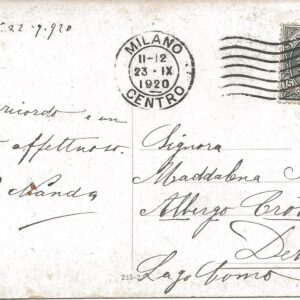 22-9-920
MILANO
11-12
23·IX
1920
CENTRO
ricordo e un
affettuoso
Nanda
Signora
Maddalena
Albergo Cro
De
Lago Como
233-2